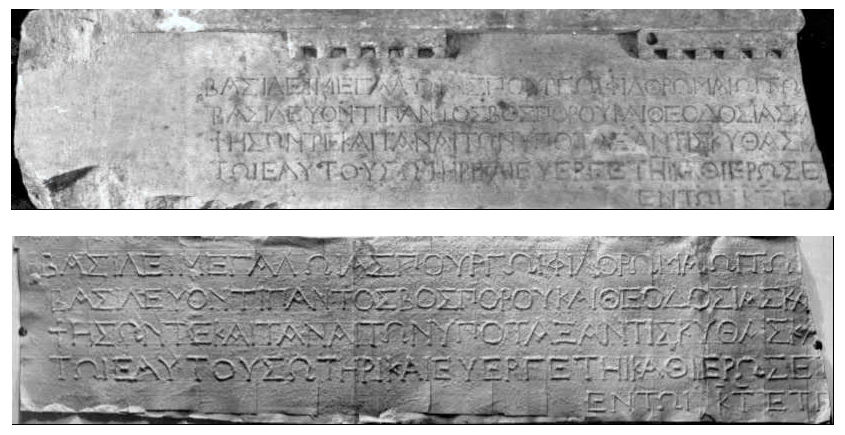 ΒΑΣΙΛΕΙΜΕΓΑΛΩΙΑΣΠΟΥΡΓΩΙΦΙΛΟΡΩΜΑΙΩΙΤΩ
ΒΑΣΙΛΕΥΟΝΤΙΠΑΝΤΟΣΒΟΣΠΟΡΟΥΚΑΙΘΕΟΔΟΣΙΑΣΚΑ
ΨΗΣΩΝΤΕΚΑΙΤΑΝΑΙΤΩΝΥΠΟΤΑΞΑΝΤΙΣΚΥΘΑΣΚ
ΤΩΙΕΑΥΤΟΥΣΩΤΗΡΙΚΑΙΕΥΕΡΓΕΤΗΙΚΑΘΙΕΡΩΣΕ
ΕΝΤΩΙ ΚΤ Ε
ΒΑΣΙΛΕΙΜΕΓΑΛΩΙΑΣΠΟΥΡΓΩΙΦΙΛΟΡΩΜΑΙΩΙΤΩ
ΒΑΣΙΛΕΥΟΝΤΙΠΑΝΤΟΣΒΟΣΠΟΡΟΥΚΑΙΘΕΟΔΟΣΙΑΣΚΑ
ΨΗΣΩΝΤΕΚΑΙΤΑΝΑΙΤΩΝΥΠΟΤΑΞΑΝΤΙΣΚΥΘΑΣΚΑ
ΤΩΙΕΑΥΤΟΥΣΩΤΗΡΙΚΑΙΕΥΕΡΓΕΤΗΙΚΑΘΙΕΡΩΣΕ
ΕΝΤΩΙ ΚΤ ΕΤΙ